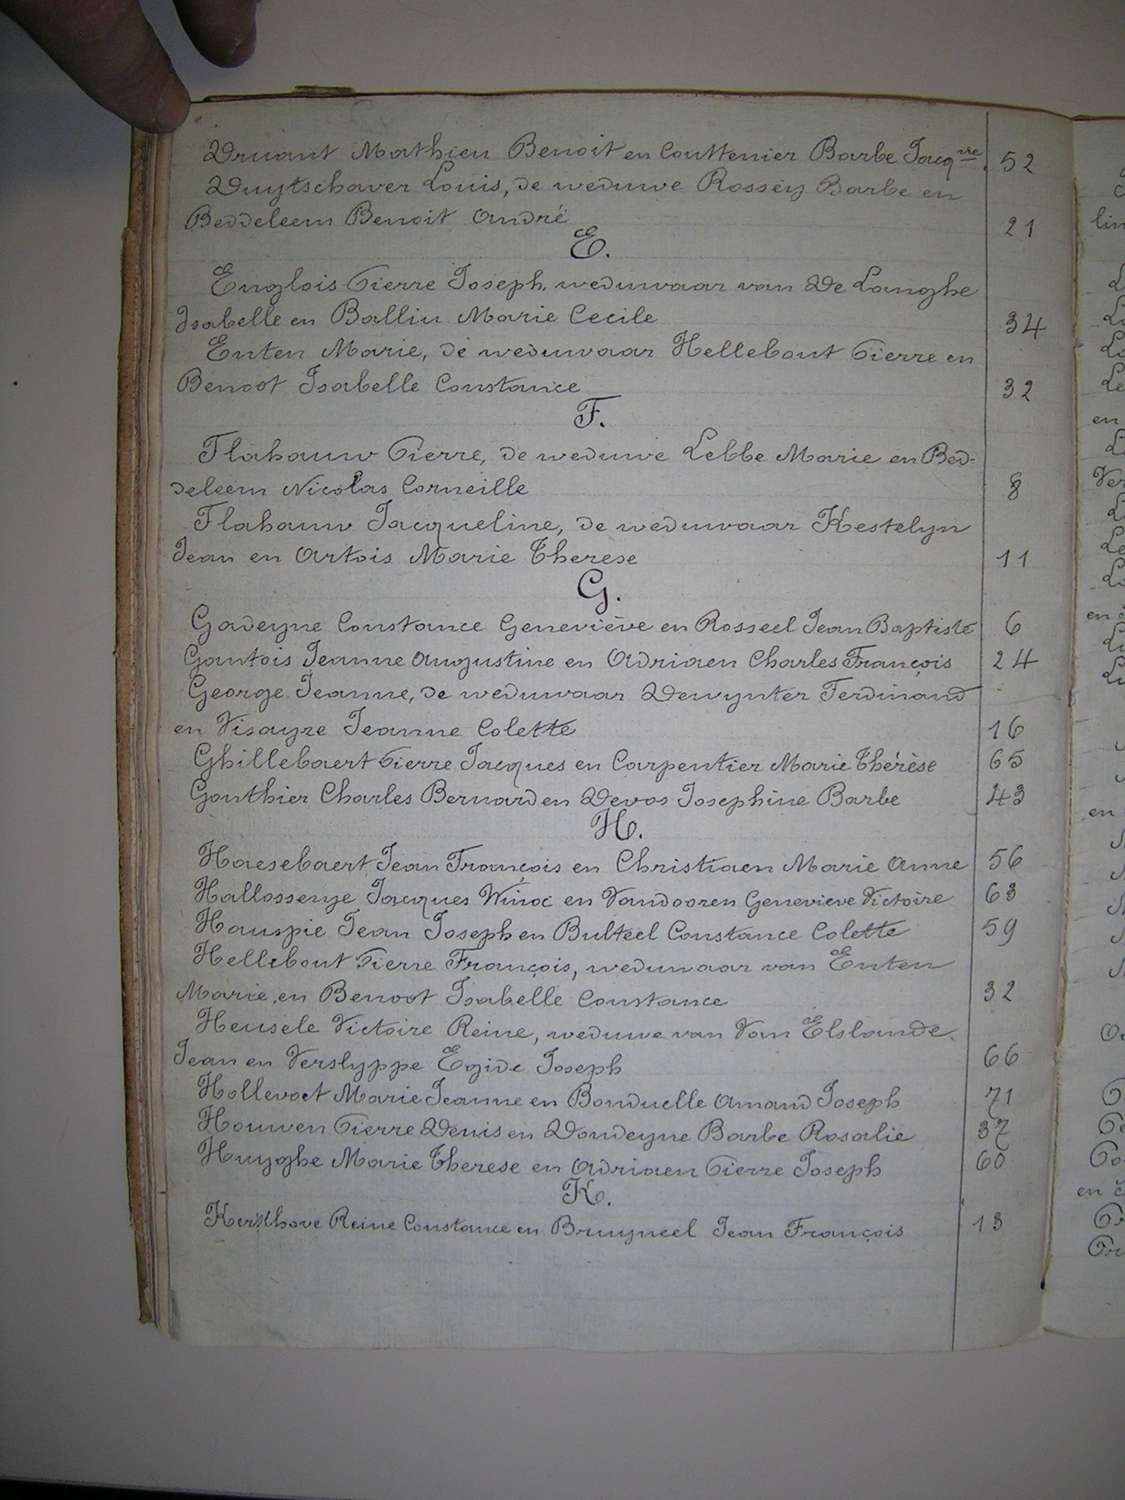 Druant Mathieu Benoit en Couttenier Barbe Jacq.ne 52
Duytschaver Louis, de weduwe Rossey Barbe en
Beddeleem Benoit André 21
E.
Englois Pierre Joseph weduwaar van De Langhe
Isabelle en Balliu Marie Cecile 34
Enten Marie, de weduwaar Hellebout Pierre en
Benoot Isabelle Constance 32
F.
Flahauw Pierre, de weduwe Lebbe Marie en Bed-
deleem Nicolas Corneille 8
Flahauw Jacqueline, de weduwaar Kestelyn
Jean en Artois Marie Therese 11
G.
Gadeyne Constance Geneviève en Rosseel Jean Baptiste 6
Gantois Jeanne Augustine en Adriaen Charles François 24
George Jeanne, de weduwaar Dewynter Ferdinand
en Visayze Jeanne Colette 16
Ghillebaert Pierre Jacques en Carpentier Marie Thérèse 65
Gonthier Charles Bernard en Devos Josephine Barbe 43
H.
Haesebaert Jean François en Christiaen Marie Anne 56
Hallossenye Jacques Winoc en Vandooren Genevieve Victoire 63
Hauspie Jean Joseph en Bulteel Constance Colette 59
Hellebout Pierre François, weduwaar van Enten
Marie, en Benoot Isabelle Constance 32
Heusele Victoire Reine, weduwe van Van Elslande
Jean en Verslyppe Egide Joseph 66
Hollevoet Marie Jeanne en Bonduelle Amand Joseph 71
Houwen Pierre Denis en Dondeyne Barbe Rosalie 37
Huyghe Marie Therese en Adriaen Pierre Joseph 60
K.
Kerkhove Reine Constance en Bruyneel Jean François 13